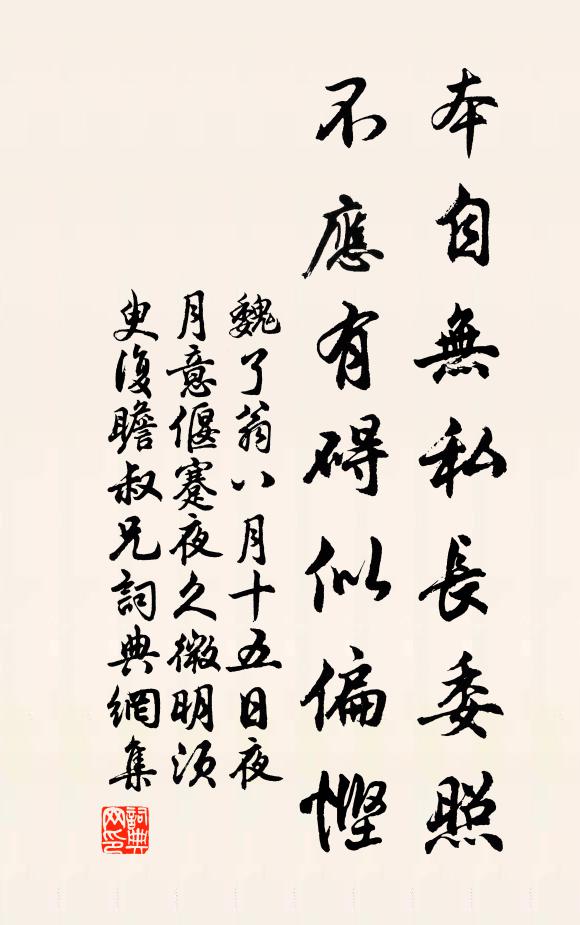 本自無私長委照
不應有碍似偏慳
魏了翁八月十五日夜
月意偃蹇夜久微明須
叟復瞻叔兄詞典網集
詞典
网印